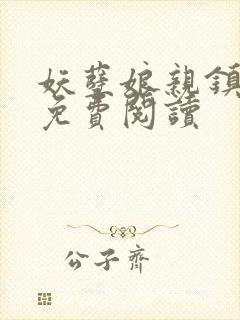 妖孽娘親鎮
免費閱讀
公子齊